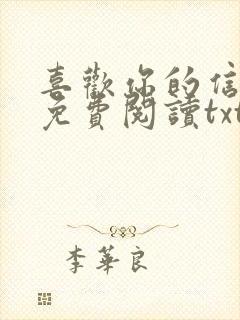 喜歡你的信
免費閱讀txt
李華良